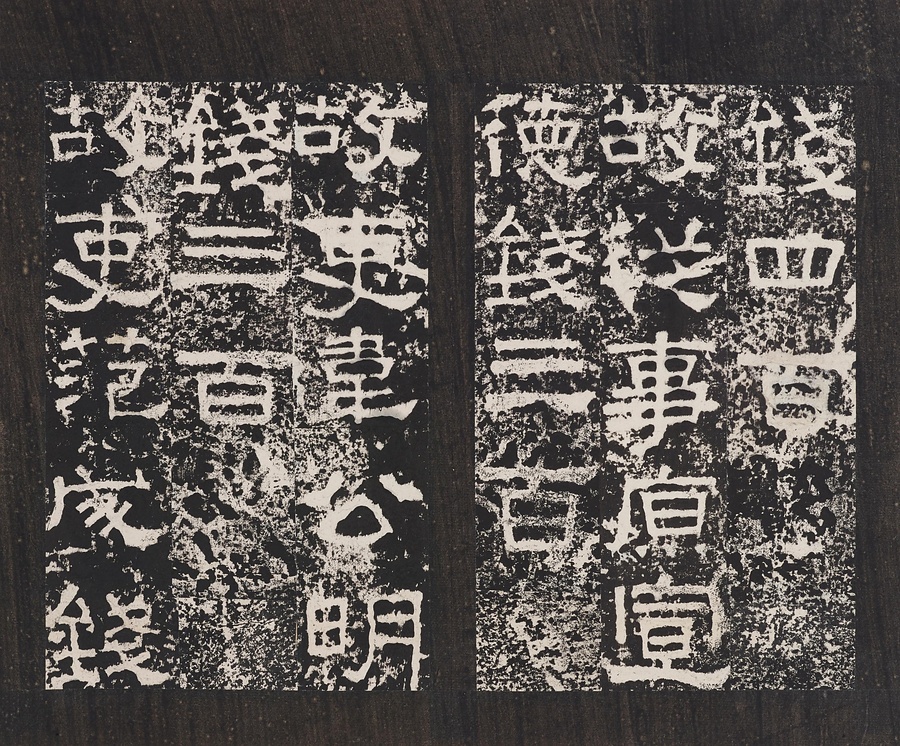 錢四百
故從事原宣
德錢三百
故吏韋公明
錢三百
故吏范成錢